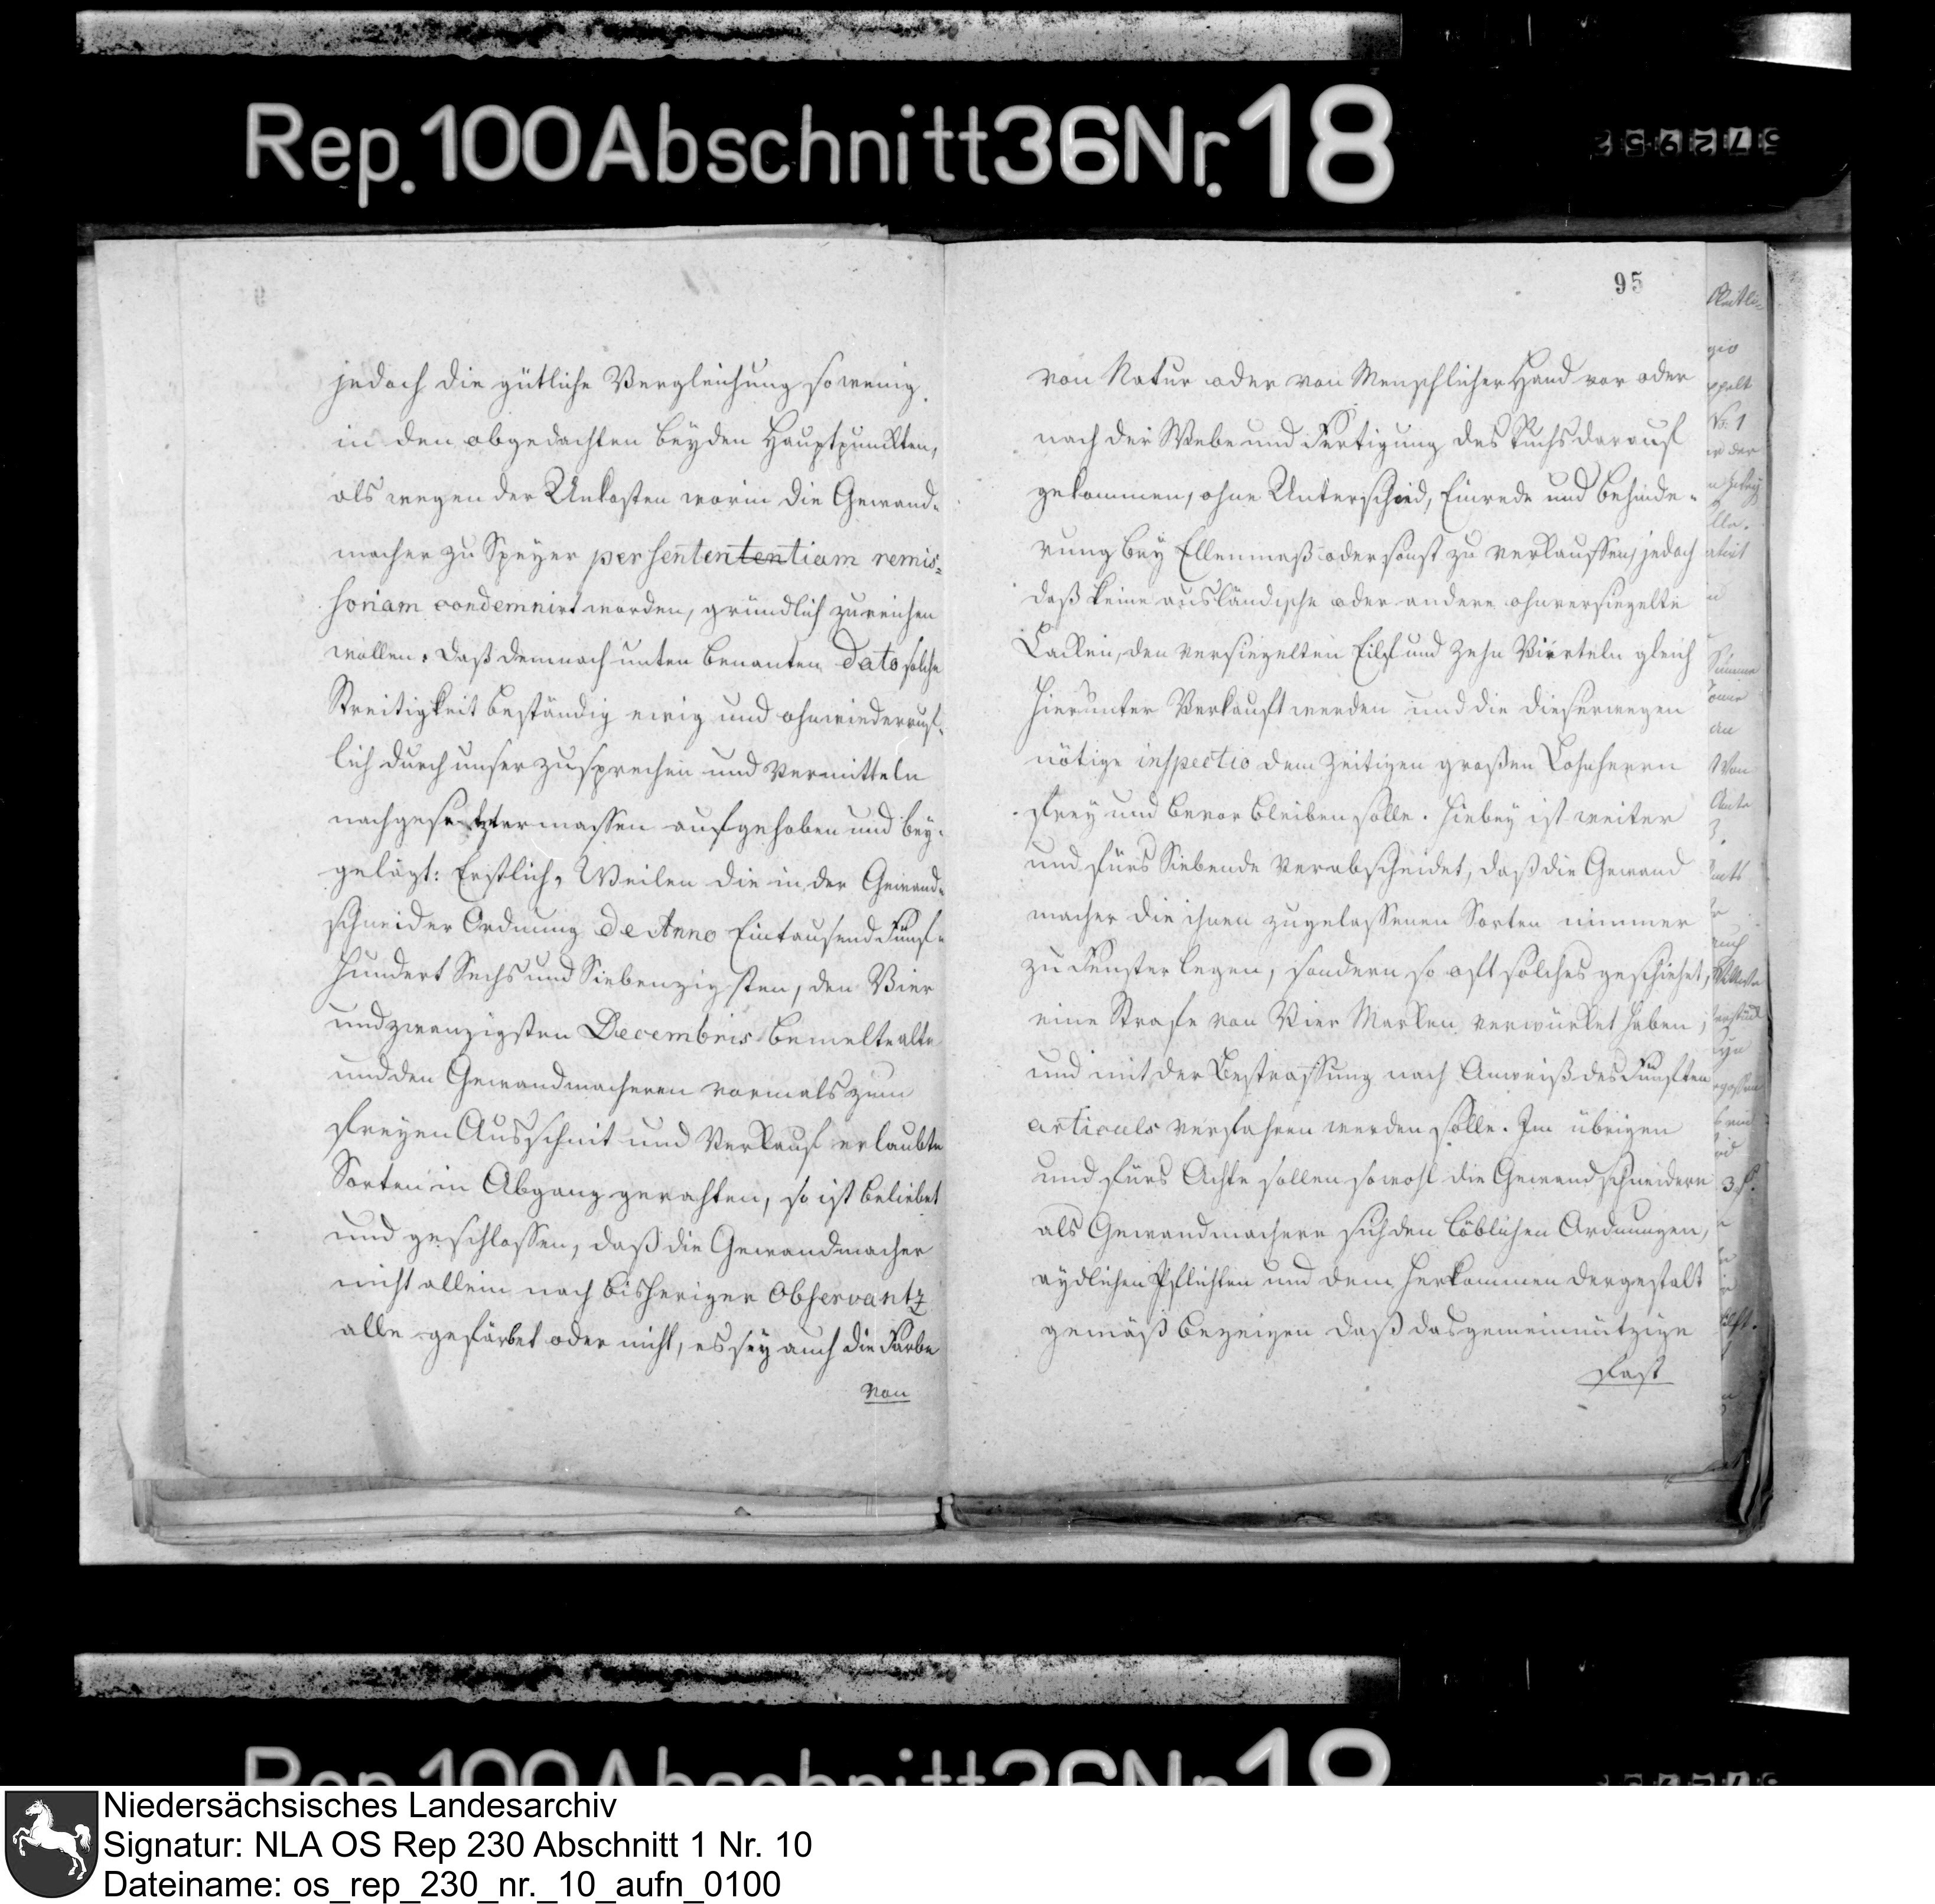 Rep. 100 Abschnitt 36 Nr. 18
572952
jedoch die gütliche Vergleichung so wenig
in den obgedachten beyden Hauptpunckten,
als wegen der Unkosten worin die Gewand-
macher zu Speyer per sententententiam remis-
soriam condemnirt worden, gründlich zureichen
wollen. Daß demnach unten benanten Dato solche
Streitigkeit beständig ewig und ohnwiederruf-
lich durch unser zusprechen und vermitteln
nachgesetztermassen aufgehoben und bey-
gelägt: Erstlich, Weilen die in der Gewand-
schneider Ordnung de Anno Eintausend Fünf-
hundert Sechs und Siebenzigsten, den Vier
und zwanzigsten Decembris bemelte alte
und den Gewandmacheren vormals zum
freyen Ausschnit und Verkauf erlaubte
Sorten in Abgang gerahten, so ist beliebet
und geschlossen, daß die Gewandmacher
nicht allein nach bisheriger Observantz
alle gefärbet oder nicht, es sey auch die Farbe
von
95
von Natur oder von Menschlicher Hand vor oder
nach der Webe und Fertigung des Tuchs darauf
gekommen, ohne Unterschied, Einrede und behinde-
rung bey Ellenmaß oder sonst zu verkauffen, jedoch
daß keine ausländische oder andere ohnversiegelte
Lacken, den versiegelten Eilf und Zehn Vierteln gleich
hierunter Verkauft werden und die dieserwegen
nötige inspectio dem zeitigen großen Lohnherrn
frey und bevor bleiben solle. Hiebey ist weiter
und fürs Siebende verabscheidet, daß die Gewand
macher die ihnen zugelassenen Sorten nimmer
zu Fenster legen, sondern so oft solches geschiehet,
eine Strafe von Vier Marken verwürket haben;
und mit der Bestraffung nach Anweiß des Fünften
articuls verfahren werden solle. Im übrigen
und fürs Achte sollen sowohl die Gewandschneidere
als Gewandmachere sich den löblichen Ordnungen,
aydlichen Pflichten und dem Herkommen dergestalt
gemäß bezeigen daß das gemeinnützige
fast
Niedersächsisches Landesarchiv
Signatur: NLA OS Rep 230 Abschnitt 1 Nr. 10
Dateiname: os_rep_230_nr._10_aufn_0100